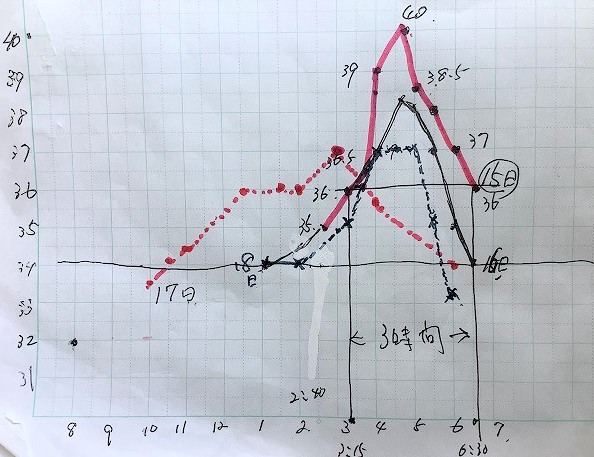 40
40
39
39
38.5
38
37
36.5
37
36
36
15日
36
35
35.
34
18日
16日
17日
33
← 3時間 →
32
31
2:40
8 9 10 11 12 1 2 3 4 5 6 7
3:15
6:30